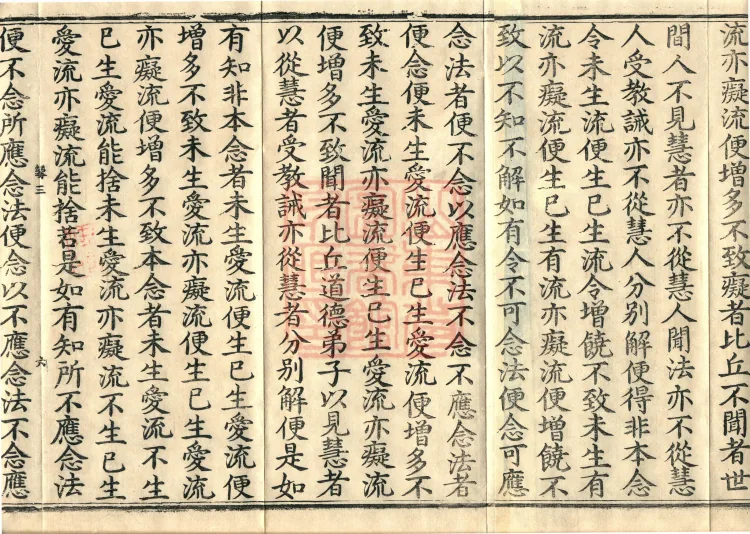 流亦癡流便增多不致癡者比丘不聞者世
間人不見慧者亦不從慧人聞法亦不從慧
人受教誡亦不從慧人分別解便得非本念
令未生流便生已生流令增饒不致未生有
流亦癡流便生已生有流亦癡流便增饒不
致以不知不解如有令不可念法便念可應
念法者便不念以應念法不念不應念法者
便念便未生愛流便生已生愛流便增多不
致未生愛流亦癡流便生已生愛流亦癡流
便增多不致聞者比丘道德弟子以見慧者
以從慧者受教誡亦從慧者分別解便是如
有知非本念者未生愛流便生已生愛流便
增多不致未生愛流亦癡流便生已生愛流
亦癡流便增多不致本念者未生愛流不生
已生愛流能捨未生愛流亦癡流不生已生
愛流亦癡流能捨若是如有知所不應念法
三 六
便不念所應念法便念以不應念法不念應